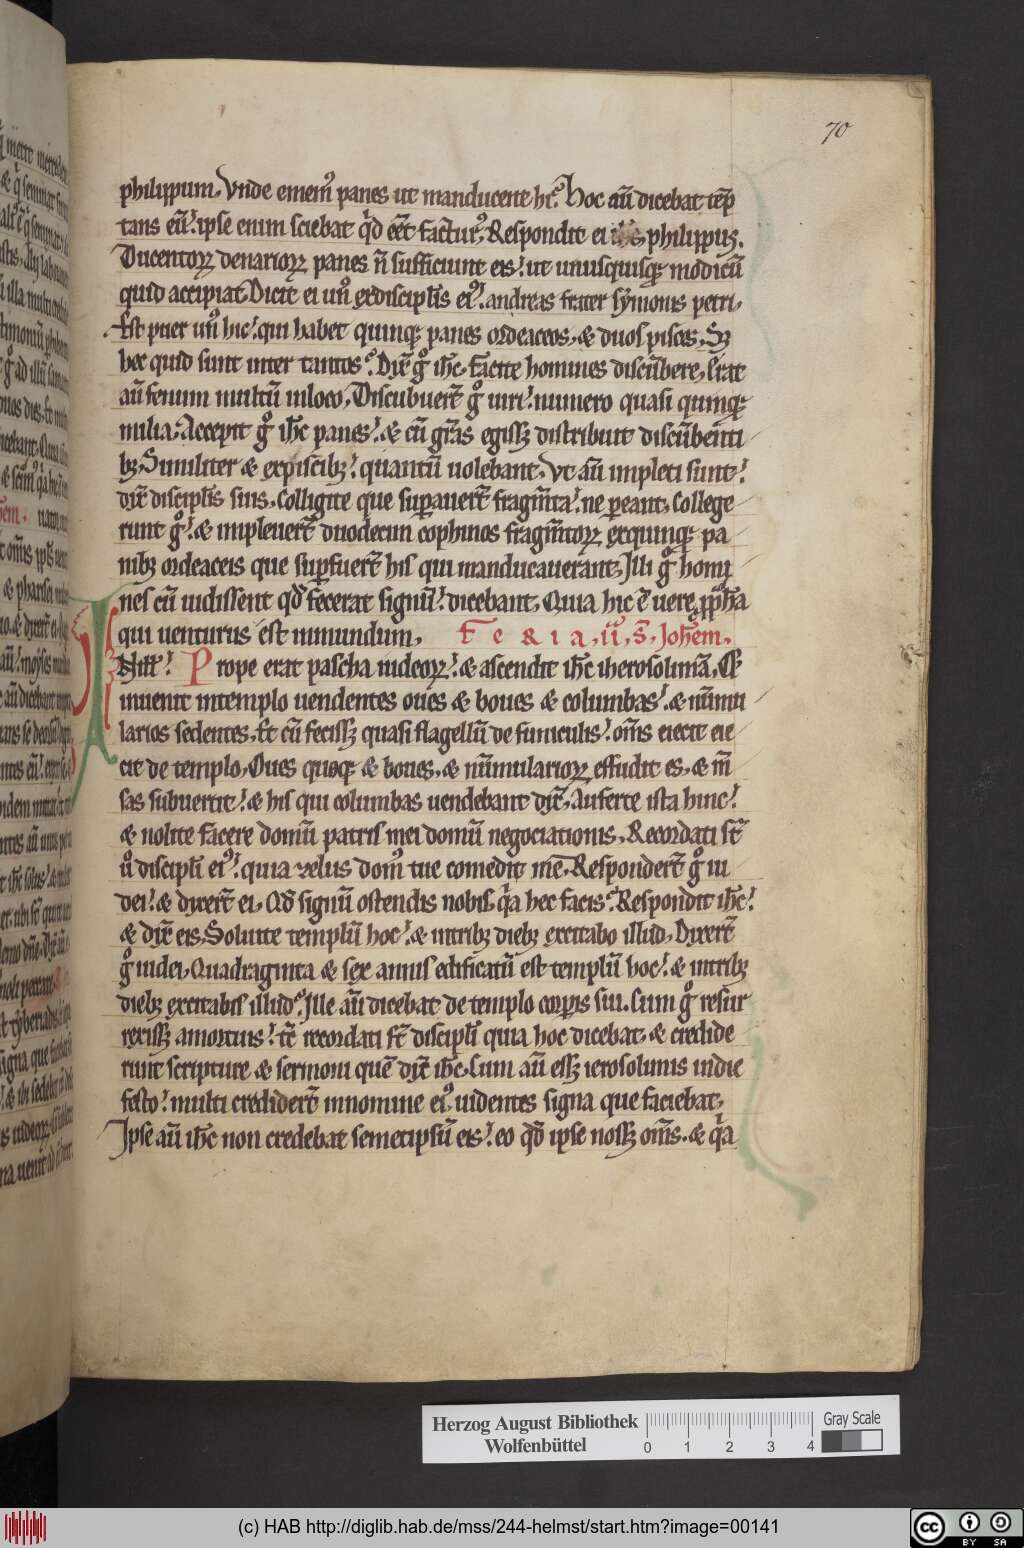 70
philippum. Vnde emem᷒ panes ut manducent hi᷒. Hoc aũ dicebat tēp
tans eũ. ipse enim sciebat qͥd eēt factur᷒. Respondit ei philippꝰ.
Ducentoꝝ denarioꝝ panes ñ sufficiunt eis. ut unusquisqꝫ modicũ
quid accipiat. Dicit ei un᷒ ex discipl̃is ei᷒. andreas frater symonis petri.
Est puer un᷒ hic. qui habet quinqꝫ panes ordeaceos. & duos pisces. Sꝫ
hec quid sunt inter tantos. Dix̃ gͦ ih̃c. Facite homines discũbere. Erat
aũ fenum multũ inloco. Discubuer̃t gͦ uiri. numero quasi quinqꝫ
milia. Accepit gͦ ih̃c panes. & cũ gr̃as egissꝫ distribuit discũbenti
bꝫ. Similiter & ex piscibꝫ. quantũ uolebant. Vt aũ impleti sunt.
dix̃ discipl̃is suis. Colligite que sup̱auer̃t fragm̃ta. ne p̱eant. College
runt gͦ. & impleuer̃t duodecim cophinos fragm̃toꝝ exquinqꝫ pa
nibꝫ ordeaceis que sup̱fuer̃t his qui manducauerant. Illi gͦ homi
nes cũ uidissent qd̃ fecerat signũ. dicebant. Quia hic ē uere ꝓph̃a
qui uenturus est inmundum. Feria. ii. S̃. Joh̃em.
IN ill̃. Prope erat pascha iudeoꝝ. & ascendit ih̃c iherosolimā. Et
inuenit intemplo uendentes oues & boues & columbas. & nũmu
larios sedentes. Et cũ fecissꝫ quasi flagellũ de funiculis. om̃s eiecit eie
cit de templo. Oues quoqꝫ & boues. & nũmularioꝝ effudit es. & m̃
sas subuertit. & his qui columbas uendebant dix̃. Auferte ista hinc.
& nolite facere domũ patris mei domũ negociationis. Recordati st̃
ũ discipl̃i ei᷒. quia zelus dom᷒ tue comedit me. Responder̃t gͦ iu
dei. & dixer̃t ei. Qd̃ signũ ostendis nobis qͥa hec facis. Respondit ih̃c.
& dix̃ eis. Soluite templũ hoc. & intribꝫ diebꝫ excitabo illud. Dixer̃t
gͦ iudei. Quadraginta & sex annis edificatũ est templũ hoc. & intribꝫ
diebꝫ excitabis illud. Ille aũ dicebat de templo corp̱is sui. Cum gͦ resur
rexissꝫ amortuis. tc̃ recordati st̃ discipl̃i quia hoc dicebat. & credide
runt scripture & sermoni quē dix̃ ih̃c. Cum aũ essꝫ ierosolimis indie
festo. multi credider̃t innomine ei᷒. uidentes signa que faciebat.
Ipse aũ ih̃c non credebat semetipsũ eis. eo qd̃ ipse nossꝫ om̃s. & qͥa
Herzog August Bibliothek
Wolfenbüttel
0 1 2 3 4
Gray Scale
(c) HAB http://diglib.hab.de/mss/244-helmst/start.htm?image=00141
cc BY SA